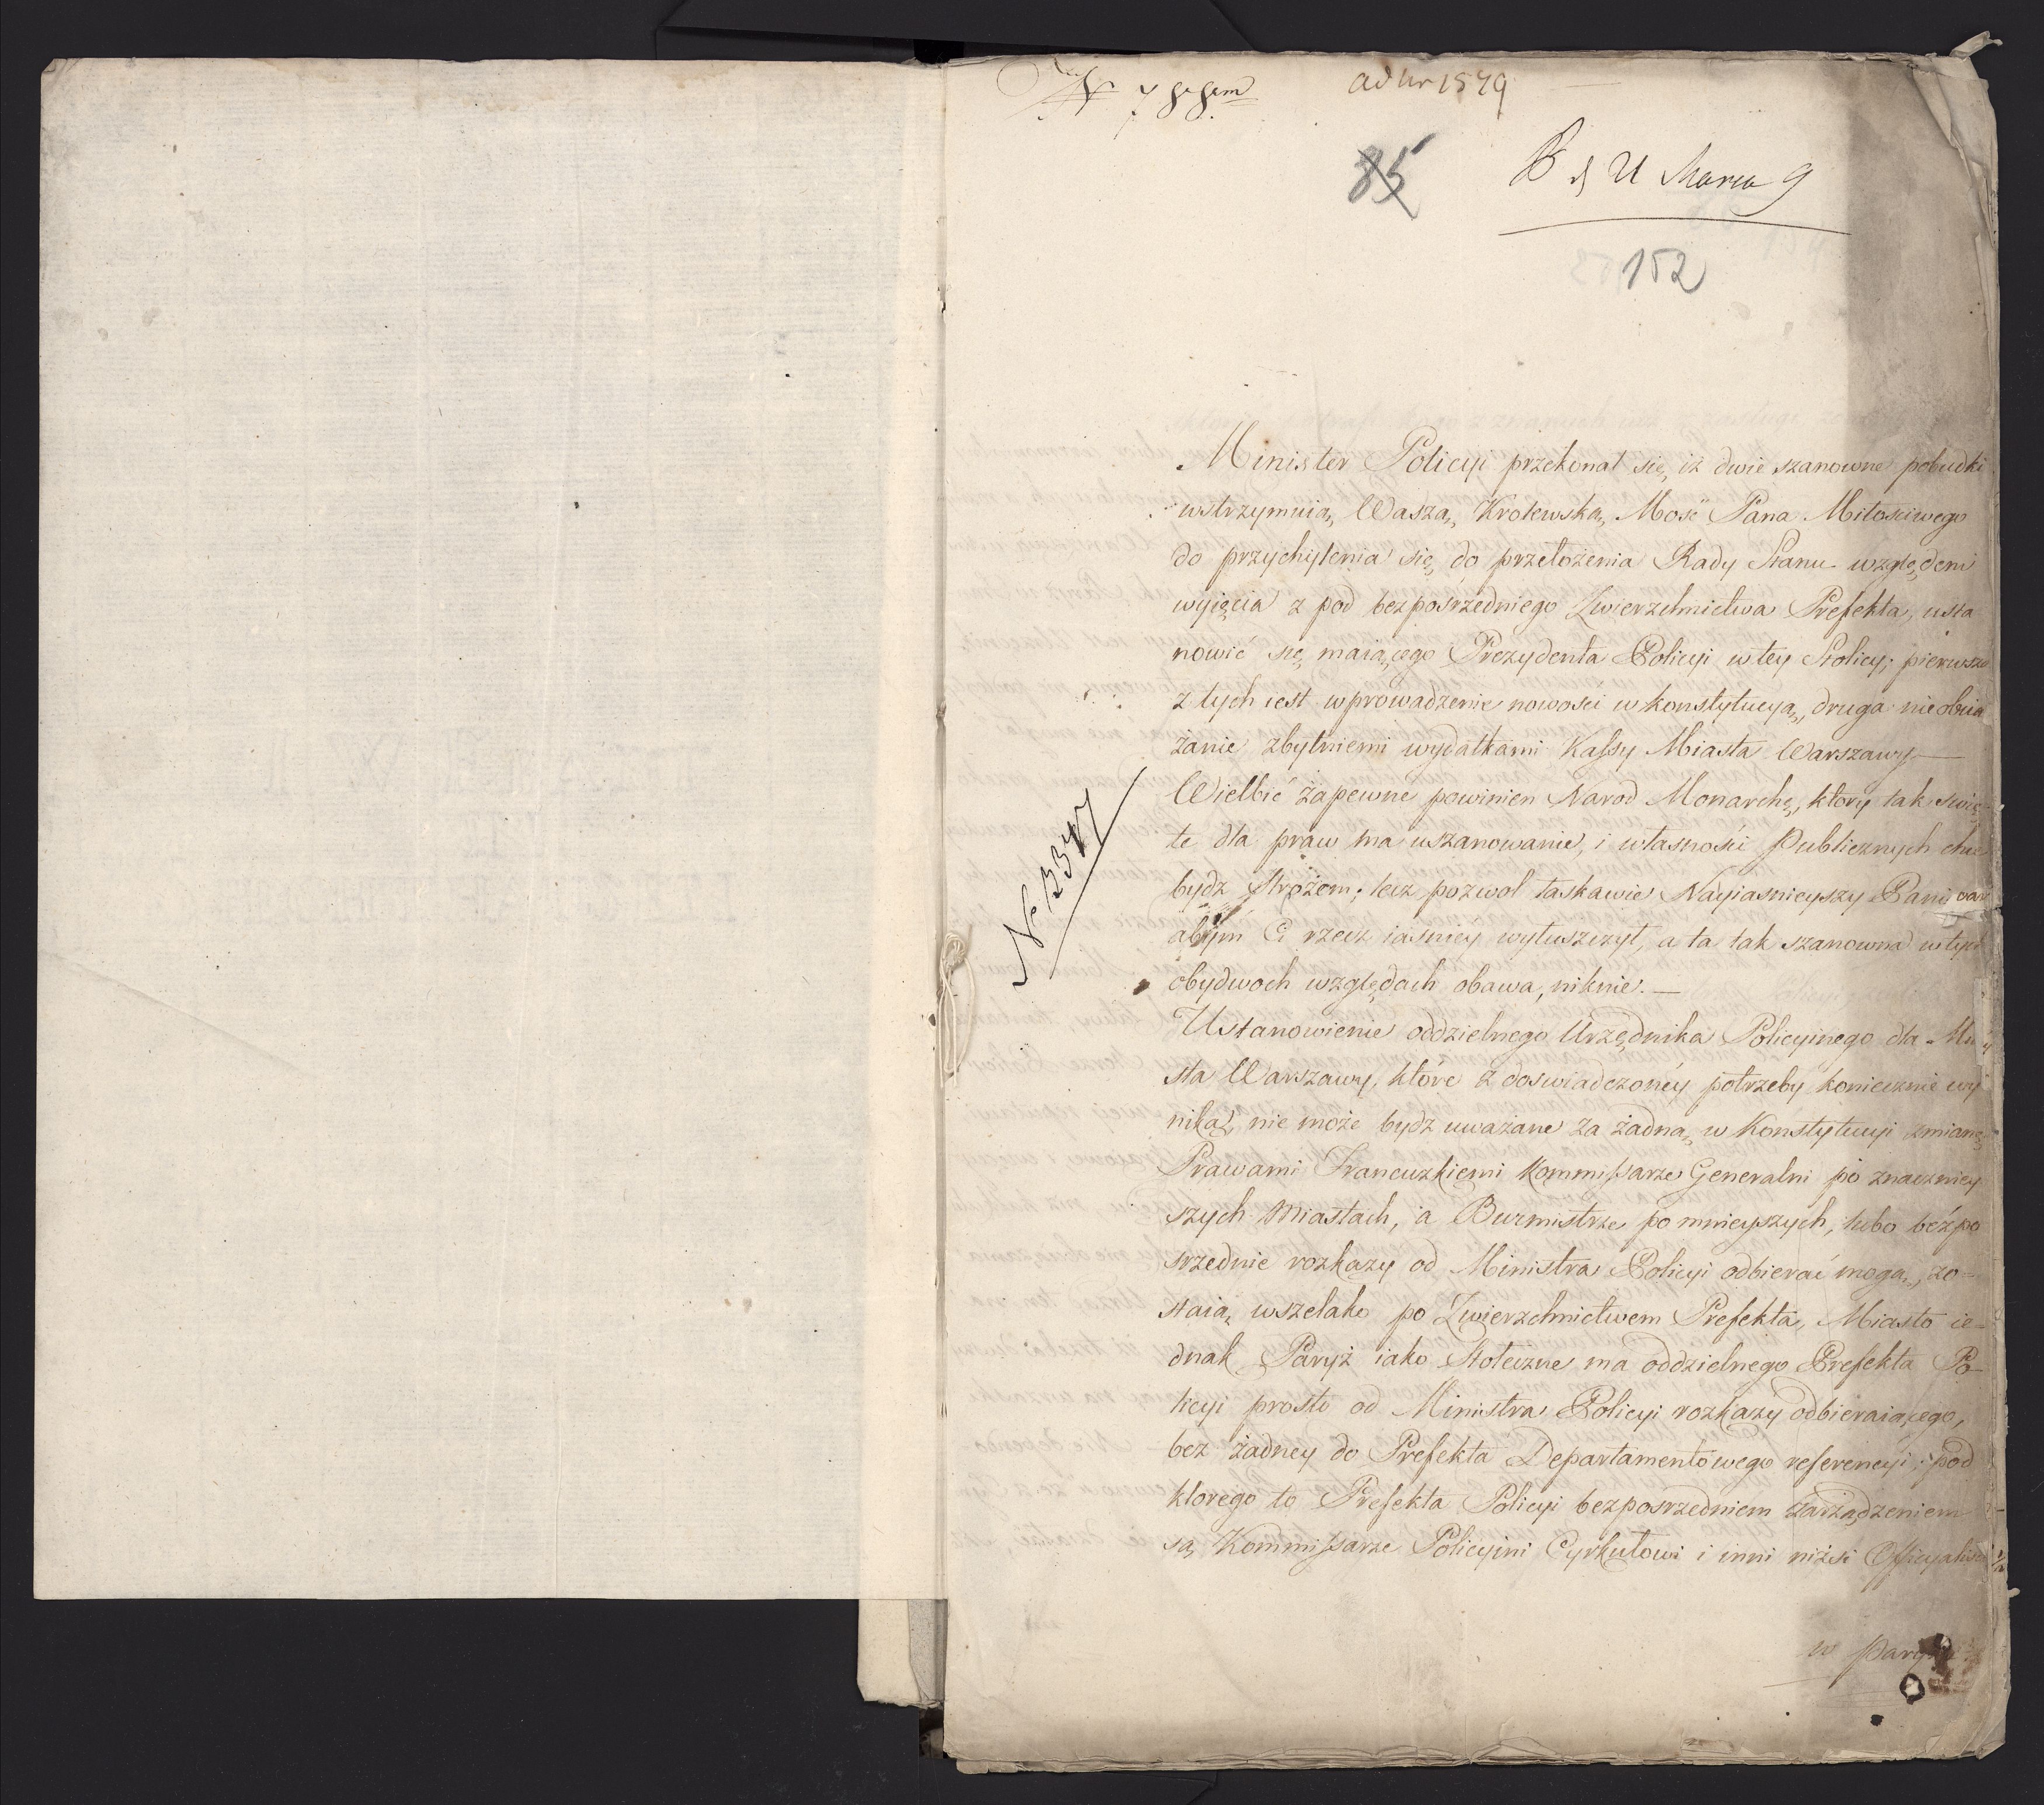 ad Nr 1579
85
152
Minister Policyi przekonał się, iż dwie szanowne pobudki
wstrzymuią, Waszą, Krolewską, Mość Pana Miłosciwego
do przychylenia się, do przełożenia Rady Stanu względem
wyięcia z pod bezpośrzedniego Zwierzchnictwa Prefekta, usta
nowić się maiącego Prezydenta Policyi w tey Stolicy; pierwsza
z tych iest wprowadzenie nowości w konstytucyą, druga nieobcią
żanie zbytniemi wydatkami Kassy Miasta Warszawy —
Wielbić zapewne powinien Narod Monarchę, ktory tak swię-
te dla praw ma uszanowanie, i własności Publicznych chce
bydz Stróżem; lecz pozwol łaskawie Nayiasnieyszy Panie
abym Ci rzecz iaśniey wyłuszczył, a ta tak szanowna w tych
obydwoch względach obawa, niknie. —
Ustanowienie oddzielnego Urzędnika Policyinego dla Mia
sta Warszawy, które z doswiadczoney potrzeby koniecznie wy
nika, nie może bydz uważane za żadną w Konstytucyi zmianę
Prawami Francuzkiemi Kommissarze Generalni po znaczniey
szych Miastach, a Burmistrze po mnieyszych, lubo bezpo
srzednie rozkazy od Ministra Policyi odbierać mogą, zo-
staią, wszelako po Zwierzchnictwem Prefekta, Miasto ie-
dnak Paryż iako Stołeczne ma oddzielnego Prefekta Po-
licyi prosto od Ministra Policyi rozkazy odbieraiącego,
bez żadney do Prefekta Departamentowego referencyi; pod
ktorego to Prefekta Policyi bezposrzedniem zarządzeniem
są, Kommissarze Policyini Cyrkułowi i inni niżsi Officyaliści
w Paryżu